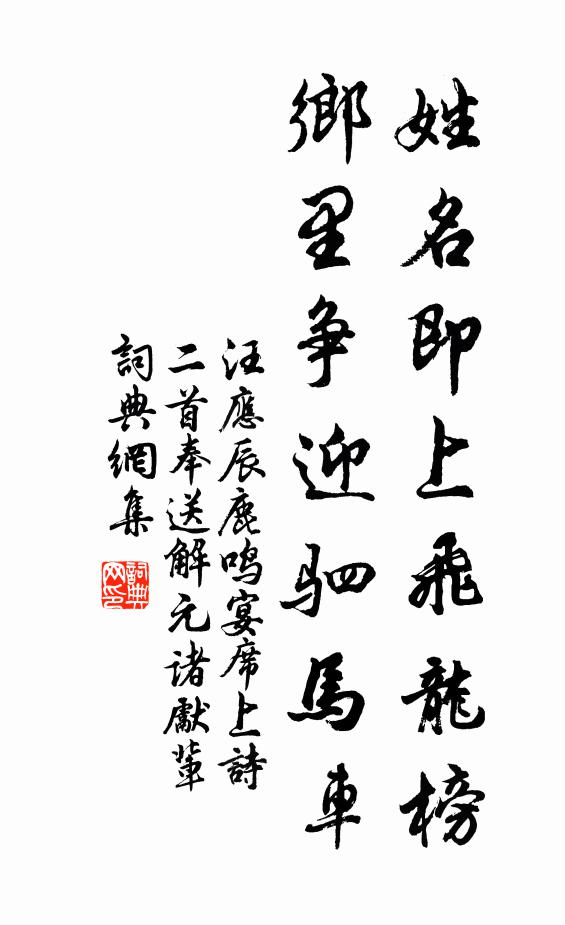 姓名即上飛龍榜
鄉里争迎駟馬車
汪應辰鹿鳴宴席上詩
二首奉送解元諸獻輩
詞典網集
詞典网印